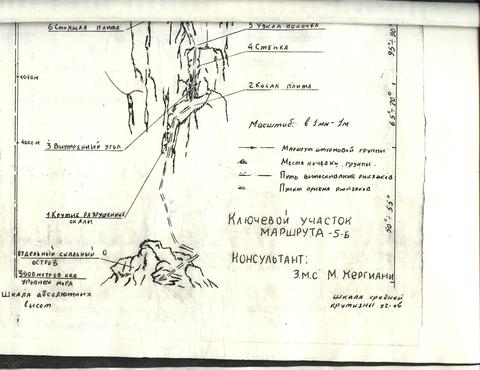 6 Стоящая плита
5 Узкая полочка
4 Стенка
95°÷90°
4040м
2 Косая плита
65÷70°
Масштаб: в 1мм-1м
4000м
3 Внутренний угол
Маршрут штурмовой группы
Места ночевки группы.
Путь вытаскивания рюкзаков
Пункт приема рюкзаков
1 Крутые разрушенные
скалы
50°÷55°
Ключевой участок
маршрута -5-б
Отдельный скальный 0
остров
Консультант:
З.м.с М. Хергиани
3900 метров над
уровнем моря
Шкала абсолютных
высот
Шкала средней
крутизны уч-ов